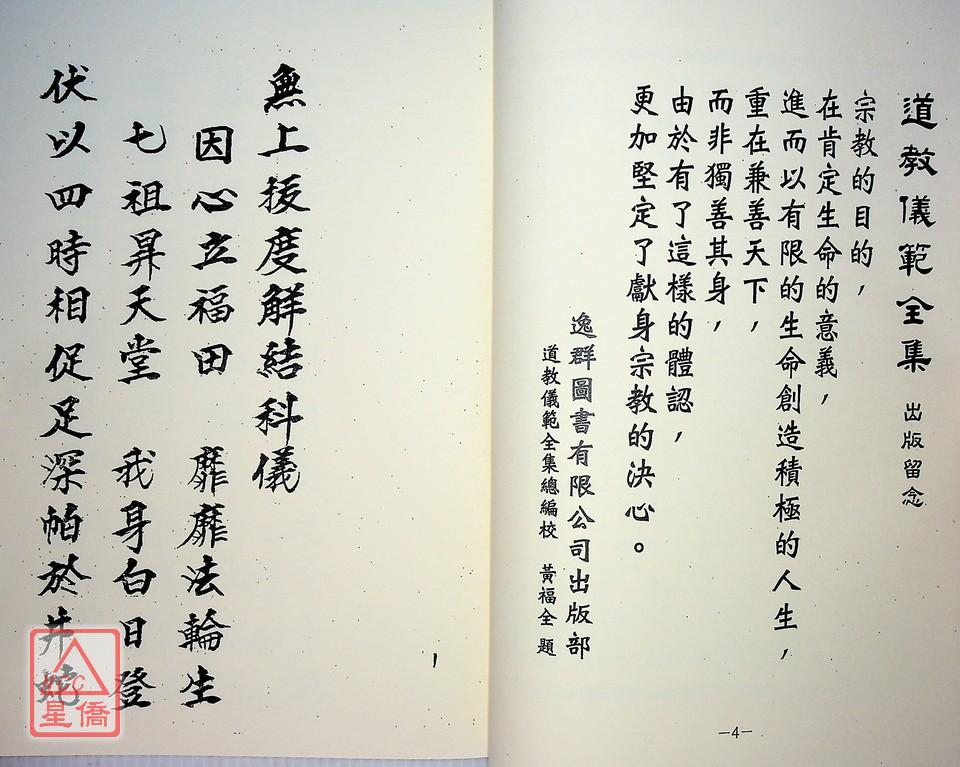 道教儀範全集 出版留念
宗教的目的，
在肯定生命的意義，
進而以有限的生命創造積極的人生，
重在兼善天下，
而非獨善其身，
由於有了這樣的體認，
更加堅定了獻身宗教的決心。
逸群圖書有限公司出版部
道教儀範全集總編校 黃福全 題
—4—
無上拔度解結科儀
因心立福田 靡靡法輪生
七祖昇天堂 我身白日登
伏以四時相促足深怕於井蛇
1
星僑